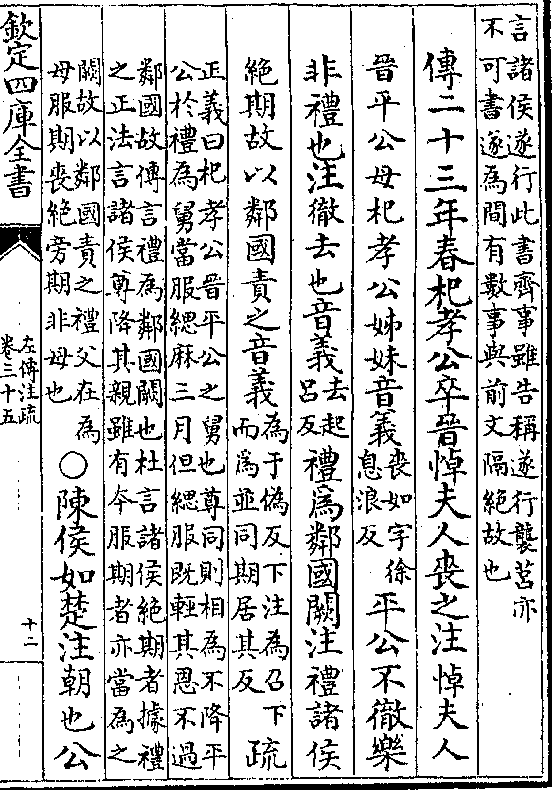 言諸侯遂行此書齊事雖告稱遂行襲莒亦
不可書遂為間有數事與前文隔絕故也
傳二十三年春杞孝公卒晉悼夫人喪之注悼夫人
晉平公母杞孝公姊妹音義喪如字徐息浪反平公不徹樂
非禮也注徹去也音義去起呂反禮為鄰國闕注禮諸侯
絕期故以鄰國責之音義為于偽反下注為召下而為並同期居其反疏
正義曰杞孝公晉平公之舅也尊同則相為不降平
公於禮為舅當服緦麻三月但緦服既輕其恩不過
鄰國故傳言禮為鄰國闕也杜言諸侯絕期者據禮
之正法言諸侯尊降其親雖有本服期者亦當為之
闕故以鄰國責之禮父在為母服期喪絕旁期非母也○陳侯如楚注朝也公
欽定四庫全書
左傳注疏
卷三十五
十二